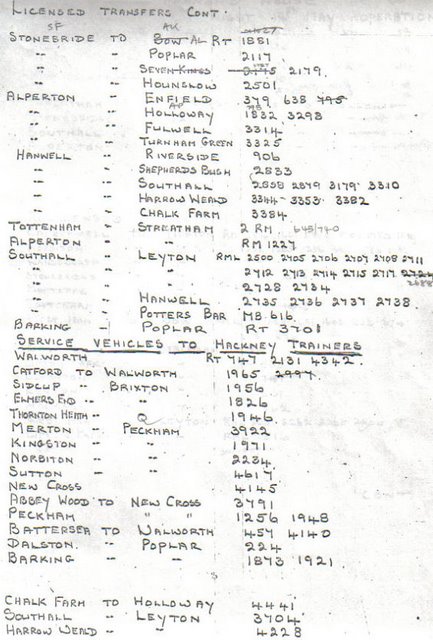 LICENSED TRANSFERS CONT.
SF AK
STONEBRIDE TO BOW AL RT 1881
" " POPLAR 2117
" " SEVEN KINGS 2179.
" " HOUNSLOW 2501
ALPERTON " ENFIELD 379 638 795
" " HOLLOWAY 1832 3298
" " FULWELL 3314
" " TURNHAM GREEN 3325
HANWELL " RIVERSIDE 906
" " SHEPHERDS BUSH 2833
" " SOUTHALL 2858 2879 3179 3310
" " HARROW WEALD 3344 3353 3382
" " CHALK FARM 3384
TOTTENHAM " STREATHAM 2 RM 648/740
ALPERTON " " RM 1227
SOUTHALL " LEYTON RML 2500 2705 2706 2707 2708 2711
" " 2712 2713 2714 2715 2717 2724
" " 2728 2734 2688
" " HANWELL 2735 2736 2737 2738.
" " POTTERS BAR MB 616.
BARKING " POPLAR RT 3701
SERVICE VEHICLES TO HACKNEY TRAINERS
WALWORTH RT 747 2131 4342.
CATFORD TO WALWORTH 1965 2997.
SIDCUP " BRIXTON 1956
ELMERS END " " 1826
THORNTON HEATH " Q 1946.
MERTON " PECKHAM 3922
KINGSTON " " 1971
NORBITON " " 2234
SUTTON " " 4617
NEW CROSS 4145
ABBEY WOOD TO NEW CROSS 3791
PECKHAM " " 1256 1948
BATTERSEA TO WALWORTH 457 4140
DALSTON. " POPLAR 224
BARKING " " 1873 1921
CHALK FARM TO HOLLOWAY 4441
SOUTHALL " LEYTON 3704
HARROW WEALD " " 4228